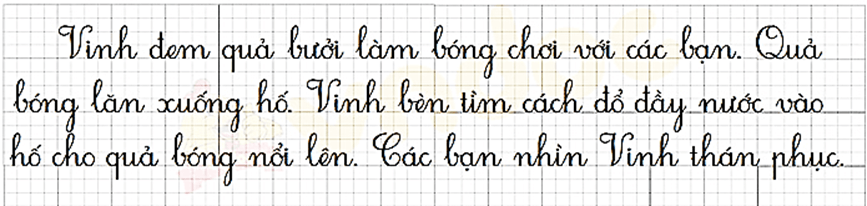 Vinh đem quả bưởi làm bóng chơi với các bạn. Quả
bóng lăn xuống hố. Vinh bèn tìm cách đổ đầy nước vào
hố cho quả bóng nổi lên. Các bạn nhìn Vinh thán phục.